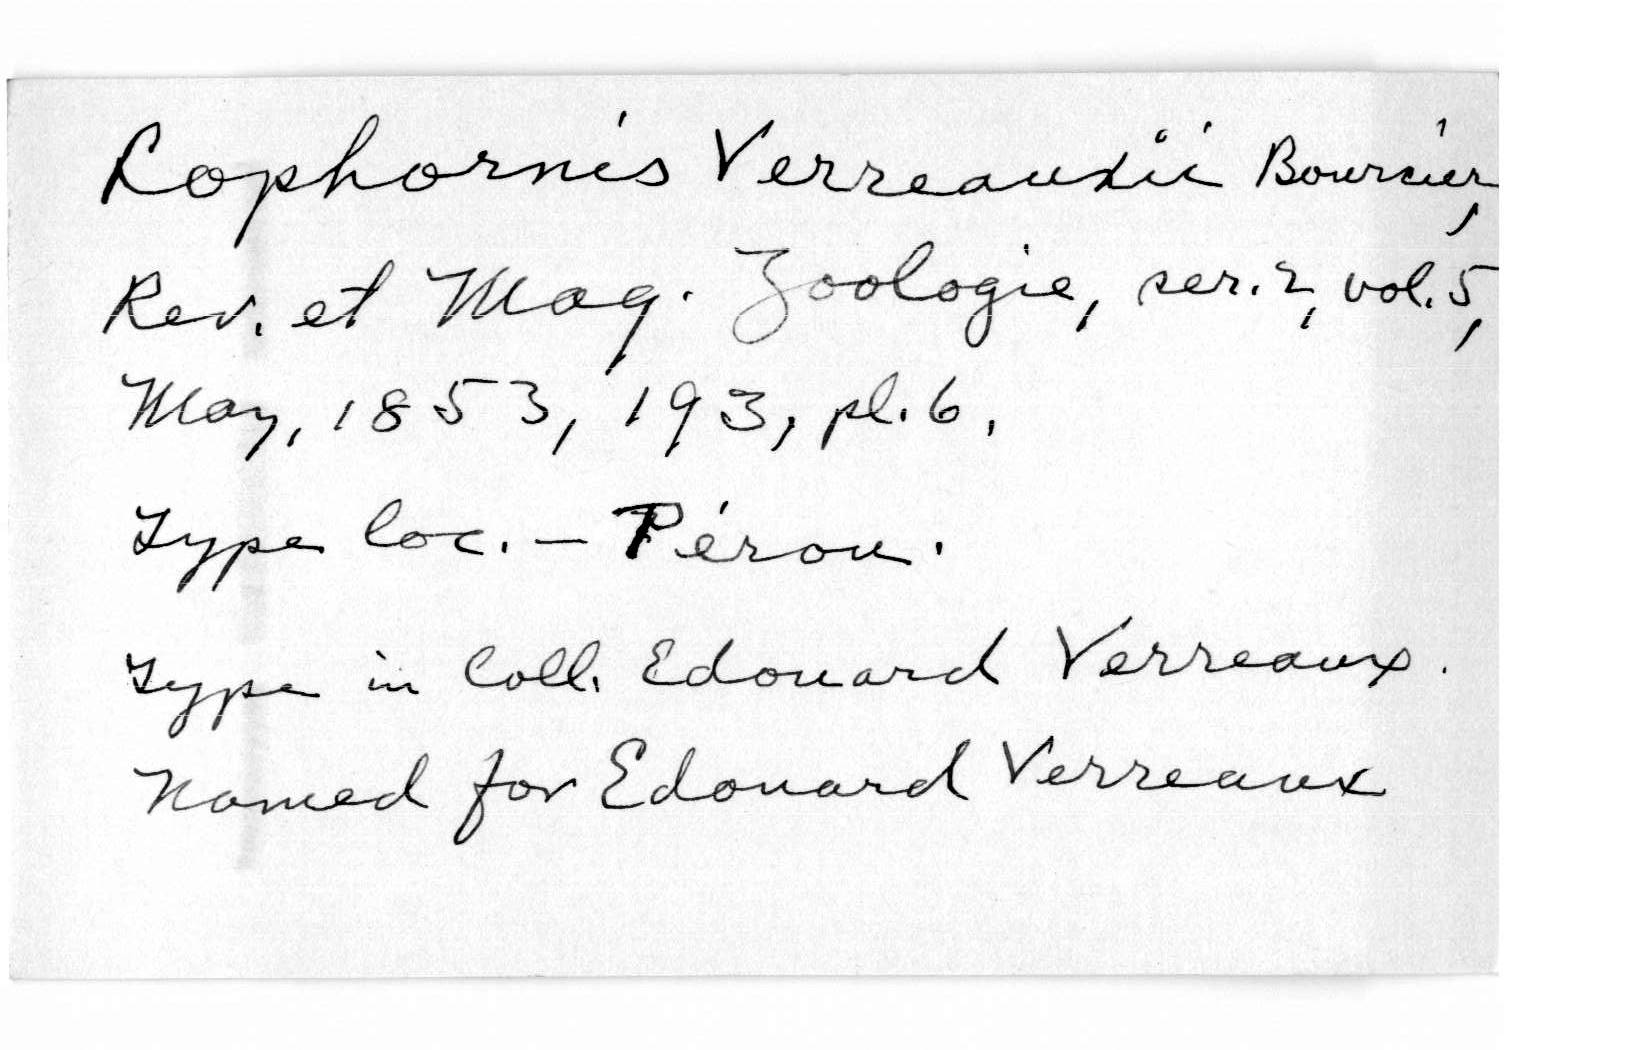 Lophornis Verreauxii Bourcier,
Rev. et Mag. Zoologie, ser. 2, vol. 5,
May, 1853, 193, pl. 6.
Type loc. — Pérou.
Type in Coll. Edouard Verreaux.
Named for Edouard Verreaux